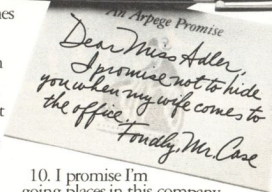 nes
An Arpege Promise
Dear Miss Adler,
I promise not to hide
you when my wife comes to
the office.
Fondly, Mr. Case
10. I promise I'm
going places in this company